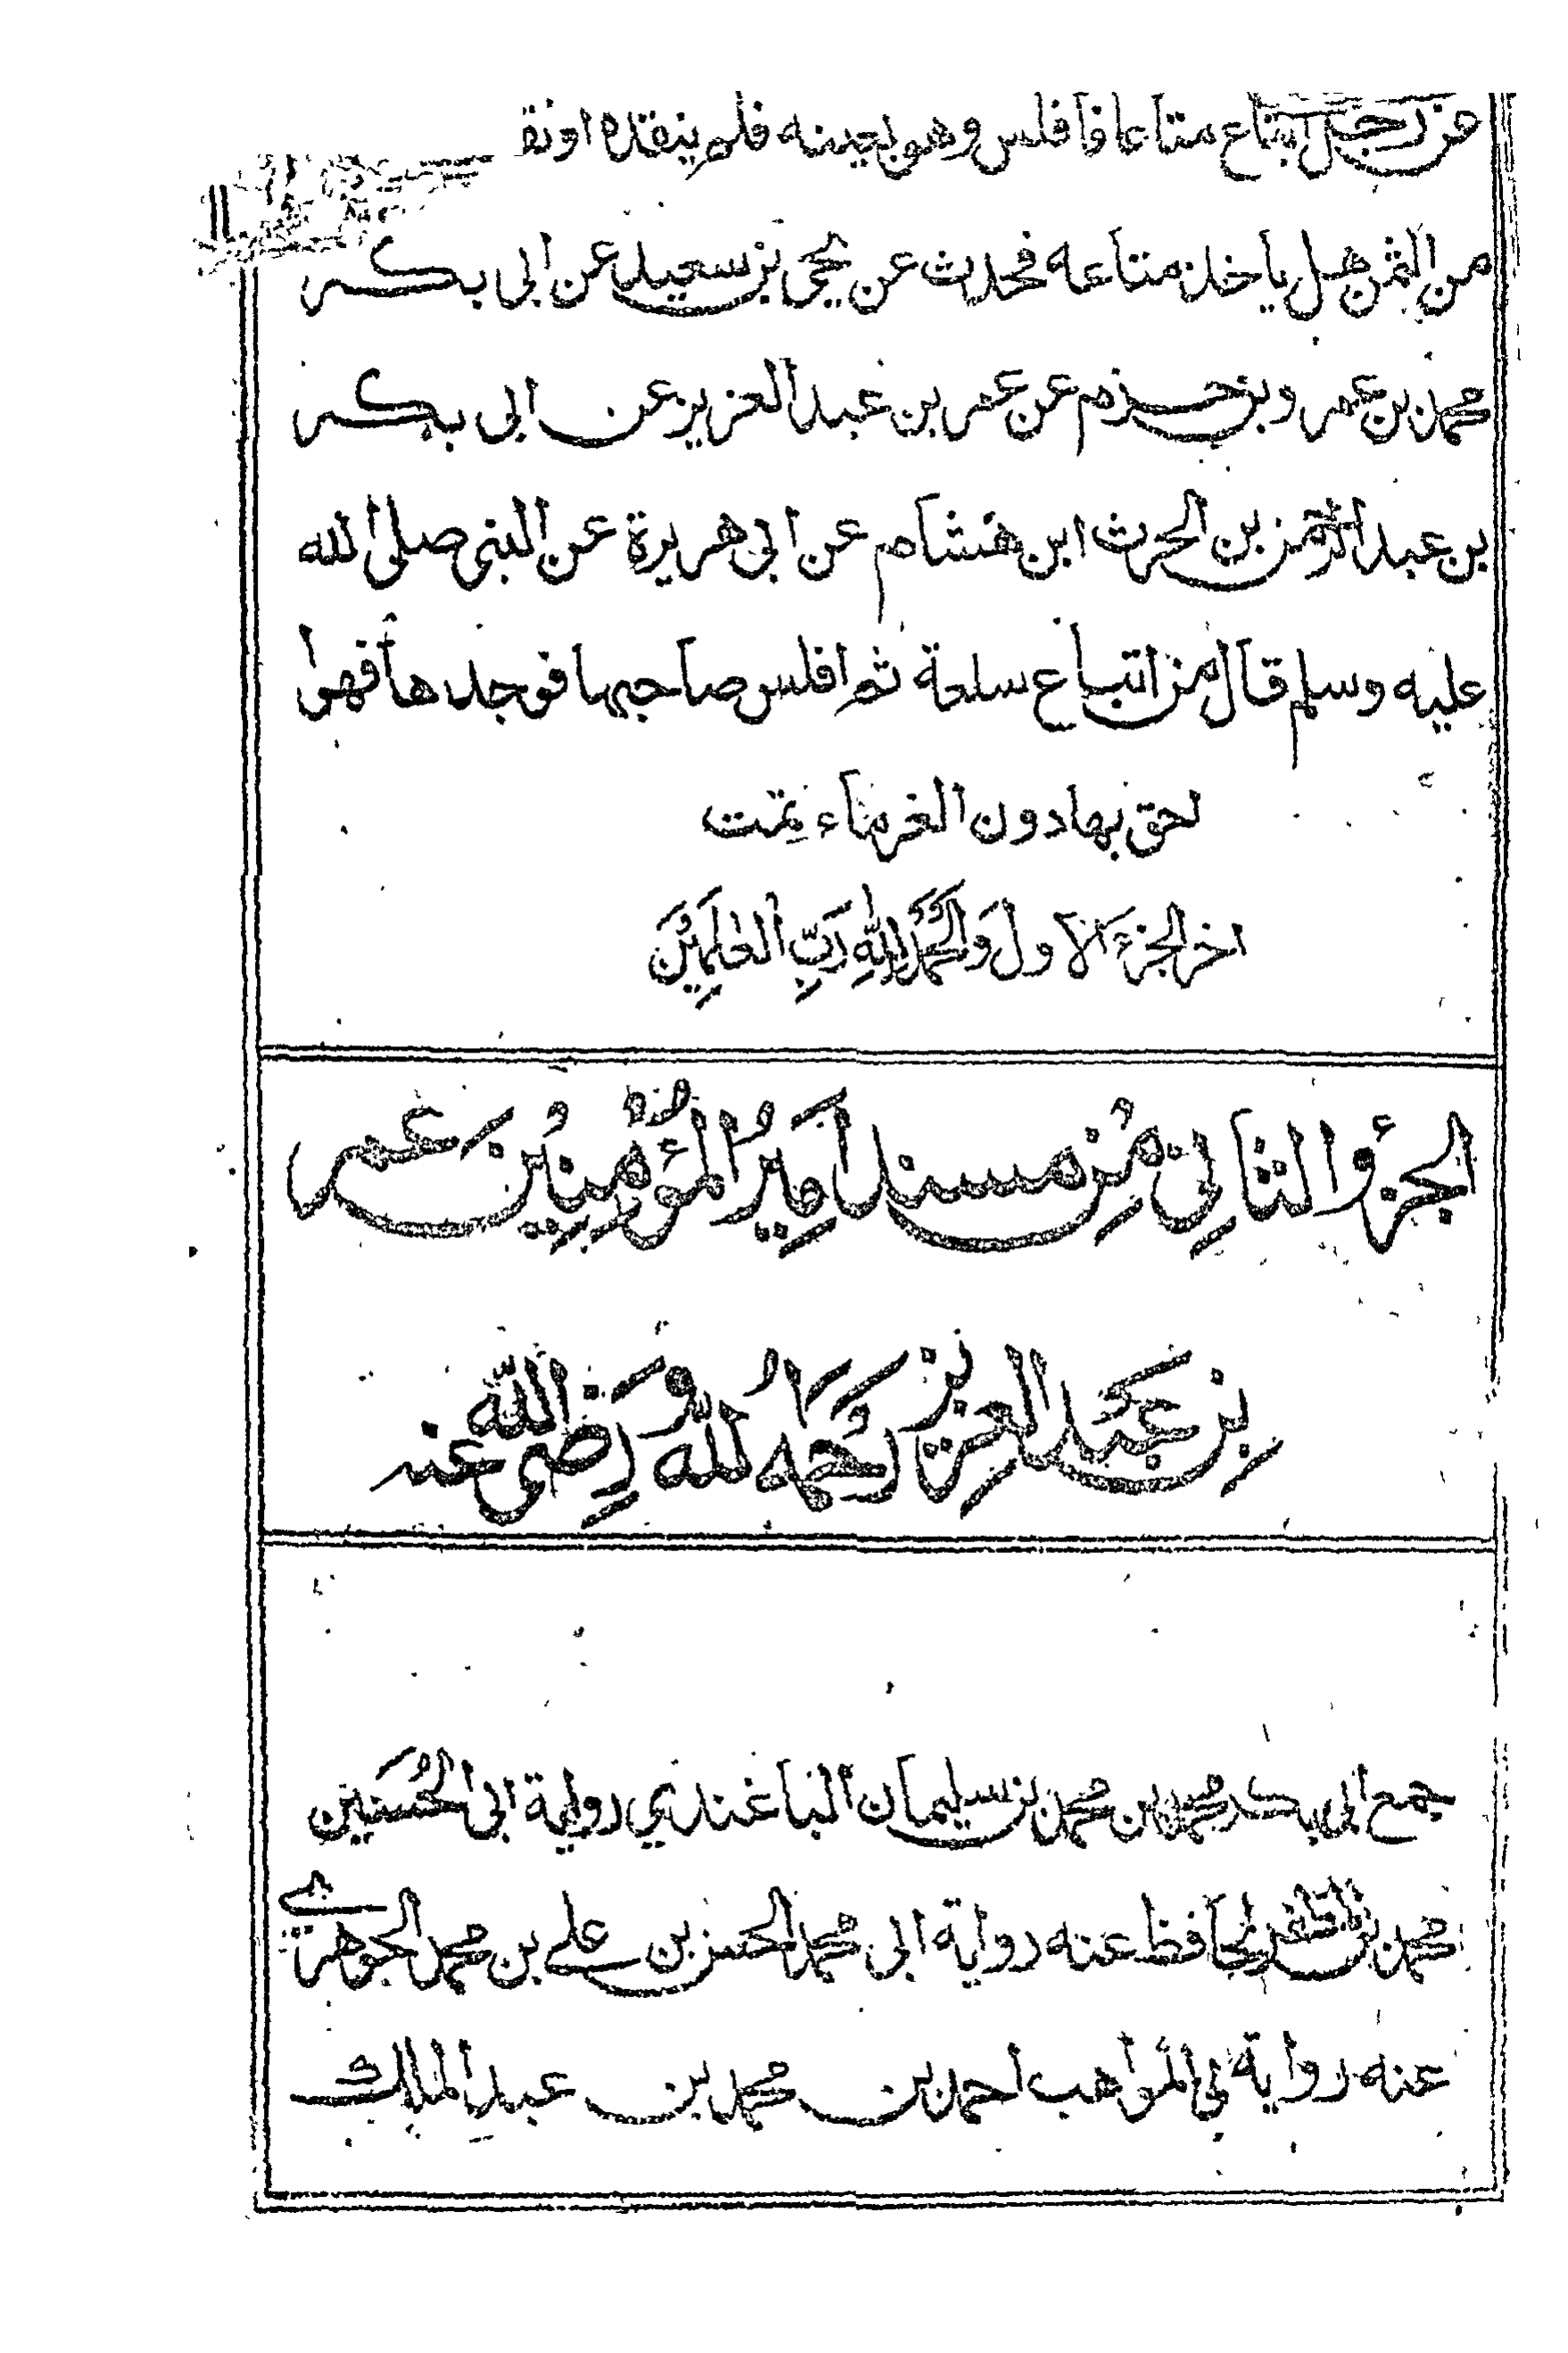 من رجل ابتاع متاعا فافلس وهو بعينه فلم ينقده او نقد
من الثمن هل ياخذ متاعه فحدث عن يحيى بن سعيد عن ابى بكر
محمد بن عمر وبن حزم عن عمر بن عبد العزيز عن ابى بكر
بن عبد الرحمن بن الحرث ابن هشام عن ابى هريرة عن النبى صلى الله
عليه وسلم قال من اتباع سلعة ثم افلس صاحبها فوجدها فهوا
لحق بها دون الغرماء تمت
اخر الجزء الاول وَالحَمْدُ لِلّٰهِ رَبِّ العٰلَمِيْنَ
الجزؤ الثانِي مِنْ مسند اَمِيْرُ الْمُؤْمِنِيْنَ عمر
بن عَبْد العزيز بن رَحْمَهُ اللّٰه وَرَضِى اللّٰه عنه
جمع ابى بكر محمد بن محمد بن سليمان الباغندي رواية ابى الحُسَين
محمد بن المظفر الحافظ عنه رواية ابى محمد الحسن بن علے بن محمد الجوهرے
عنه رواية ابى المواهب احمد بن محمد بن عبد الملك